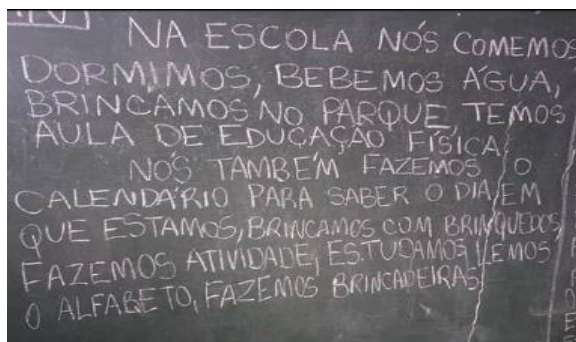 NA ESCOLA NÓS COMEMOS
DORMIMOS, BEBEMOS ÁGUA,
BRINCAMOS NO PARQUE, TEMOS
AULA DE EDUCAÇÃO FÍSICA.
NÓS TAMBÉM FAZEMOS O
CALENDÁRIO PARA SABER O DIA EM
QUE ESTAMOS, BRINCAMOS COM BRINQUEDOS,
FAZEMOS ATIVIDADE, ESTUDAMOS, LEMOS
O ALFABETO, FAZEMOS BRINCADEIRAS.